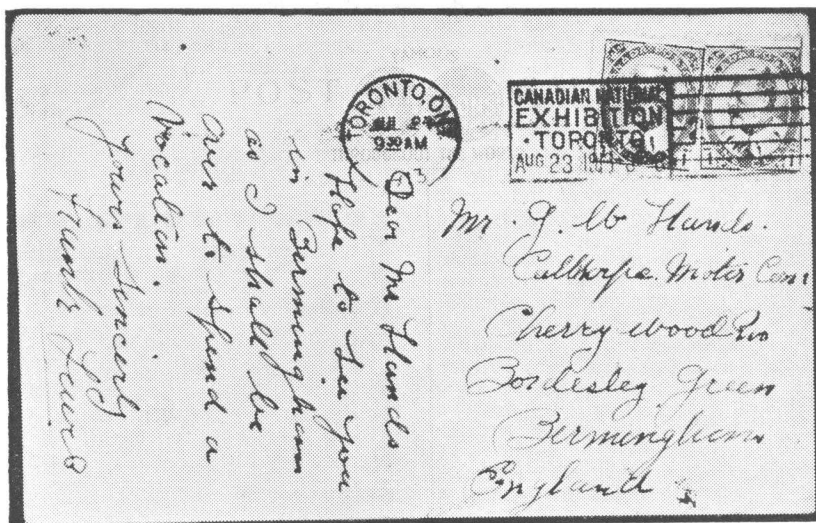 TORONTO, ONT
9 30 AM
CANADIAN NATIONAL
EXHIBITION
· TORONTO
AUG 23
Dear Mr Hands
Hope to see you
in Birmingham
as I shall be
over to spend a
Vocation.
Yours Sincerly
Lewis
Mr. G. W Hands.
Calthorpe. Motor Com
Cherry wood
Bordesley Green
Bermingham
England